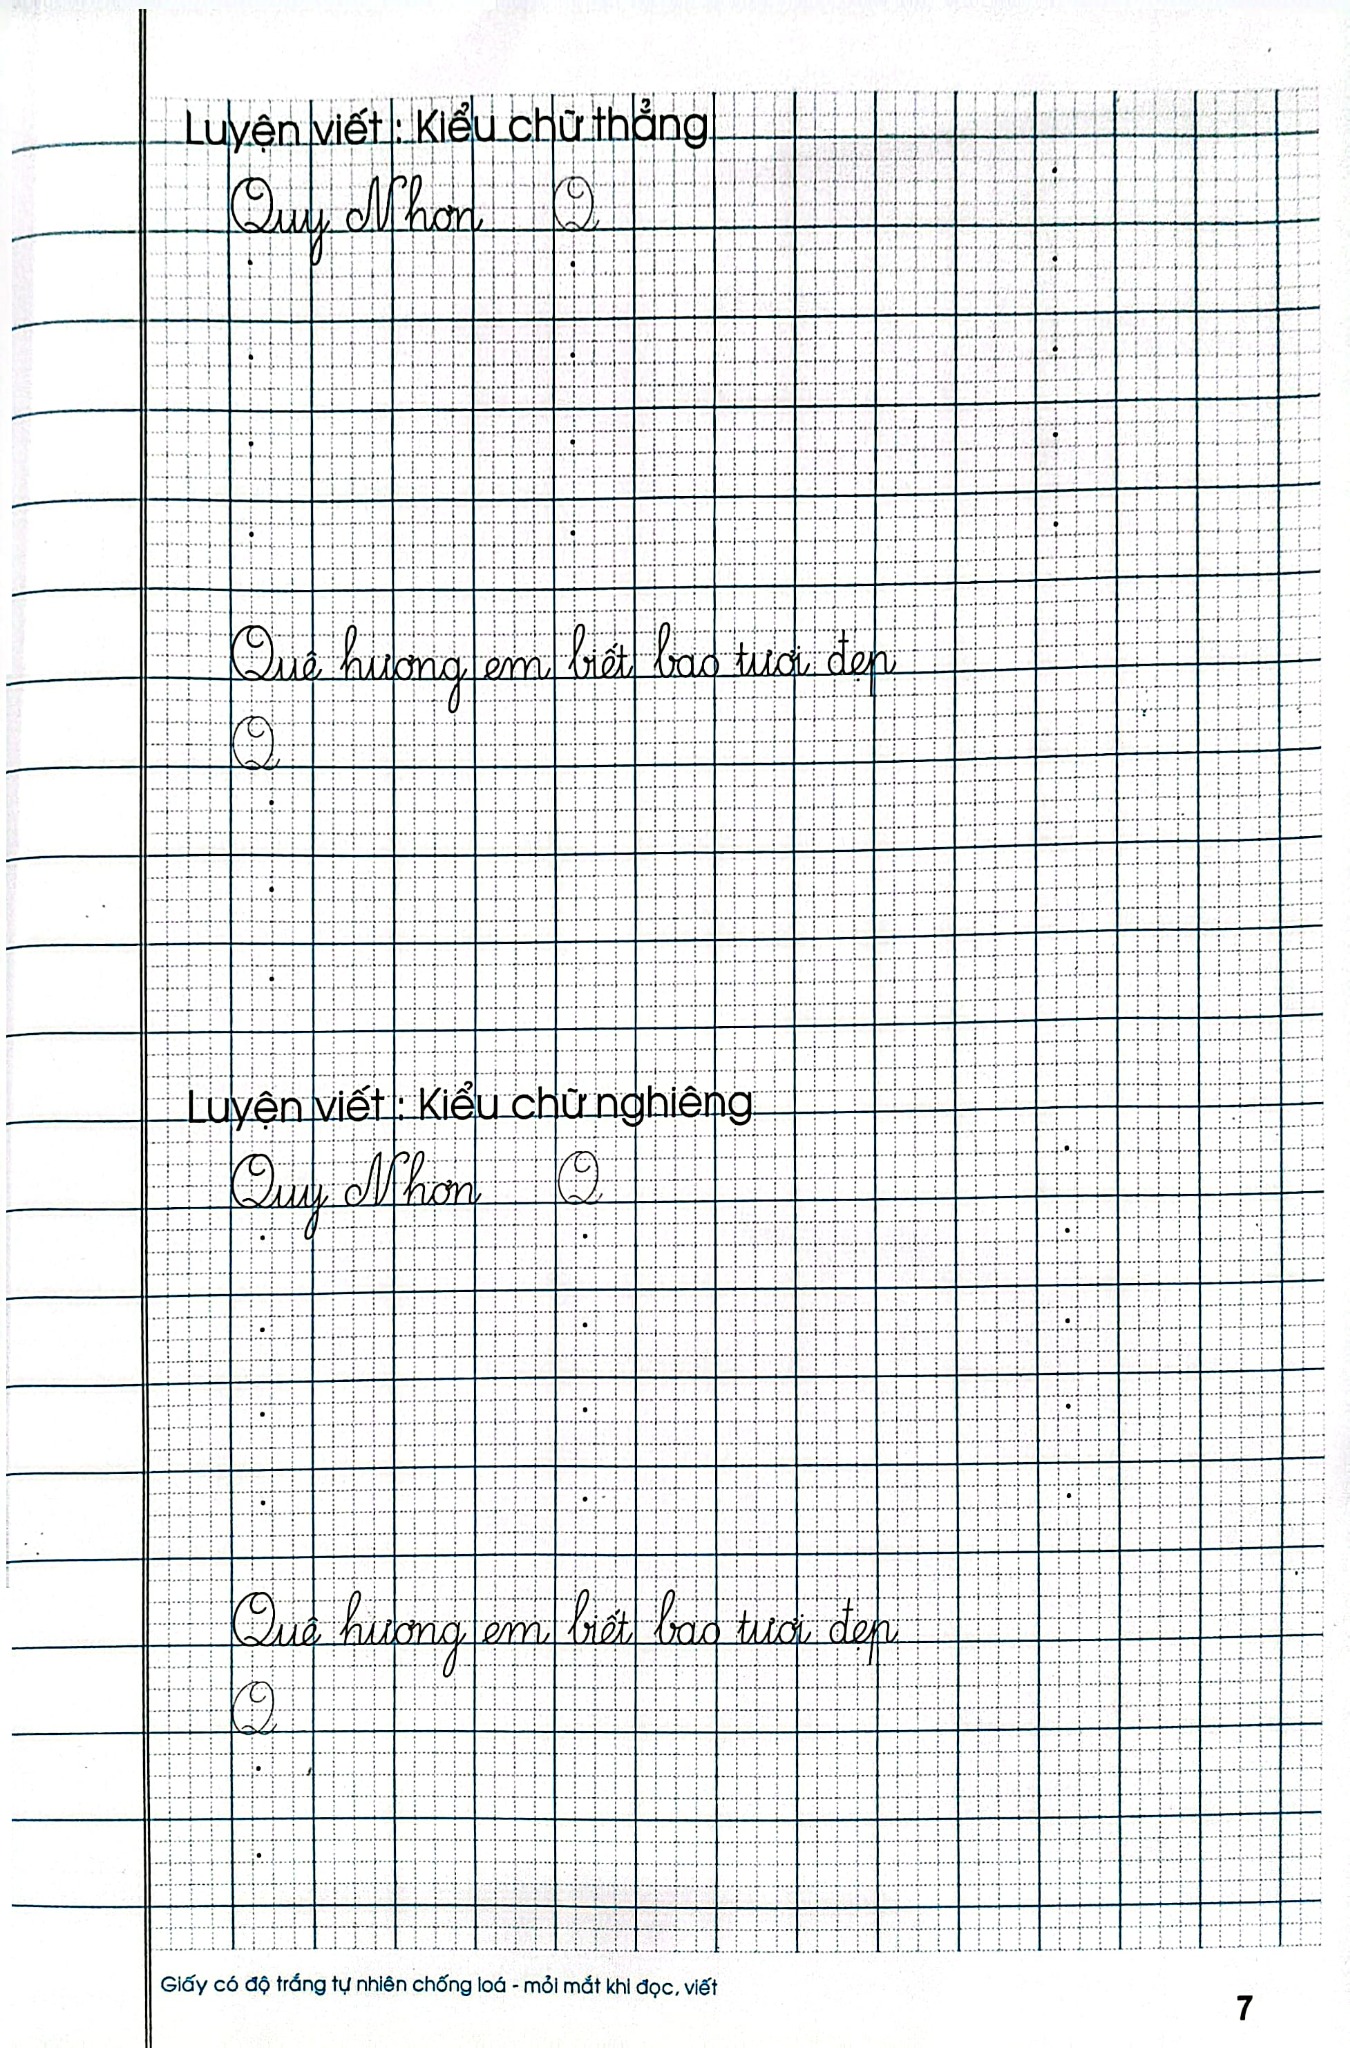 Luyện viết : Kiểu chữ thẳng
Quy Nhơn Q
Quê hương em biết bao tươi đẹp
Q
Luyện viết : Kiểu chữ nghiêng
Quy Nhơn Q
Quê hương em biết bao tươi đẹp
Q
Giấy có độ trắng tự nhiên chống loá - mỏi mắt khi đọc, viết
7